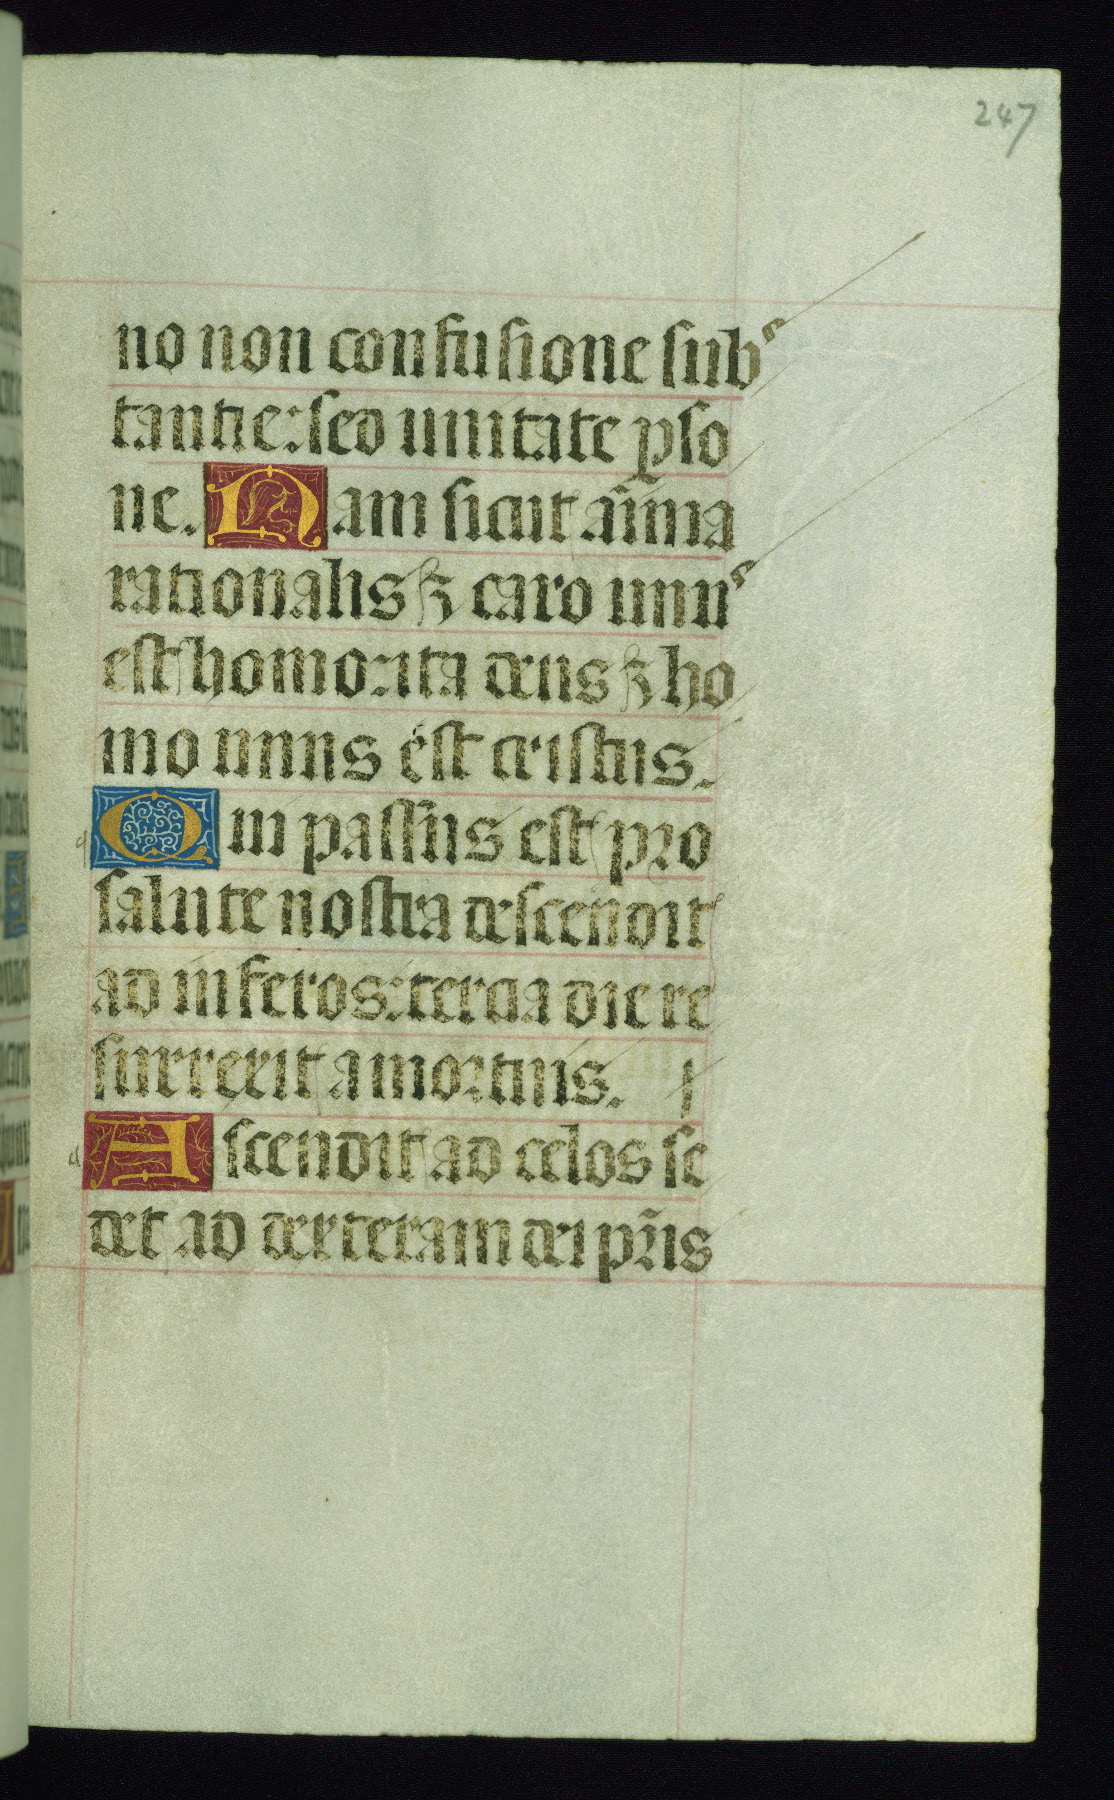 247
no non confusione subˢ
tantie: sed unitate ꝑso
ne. Nam sicut aĩma
rationalis ⁊ caro unuˢ
est homo: ita deus ⁊ ho
mo unus est cristus.
Qui passus est pro
salute nostra descendit
ad inferos: tercia die re
surrexit a mortuis.
Ascendit ad celos se
det ad dexteram dei pr̃is
q
a